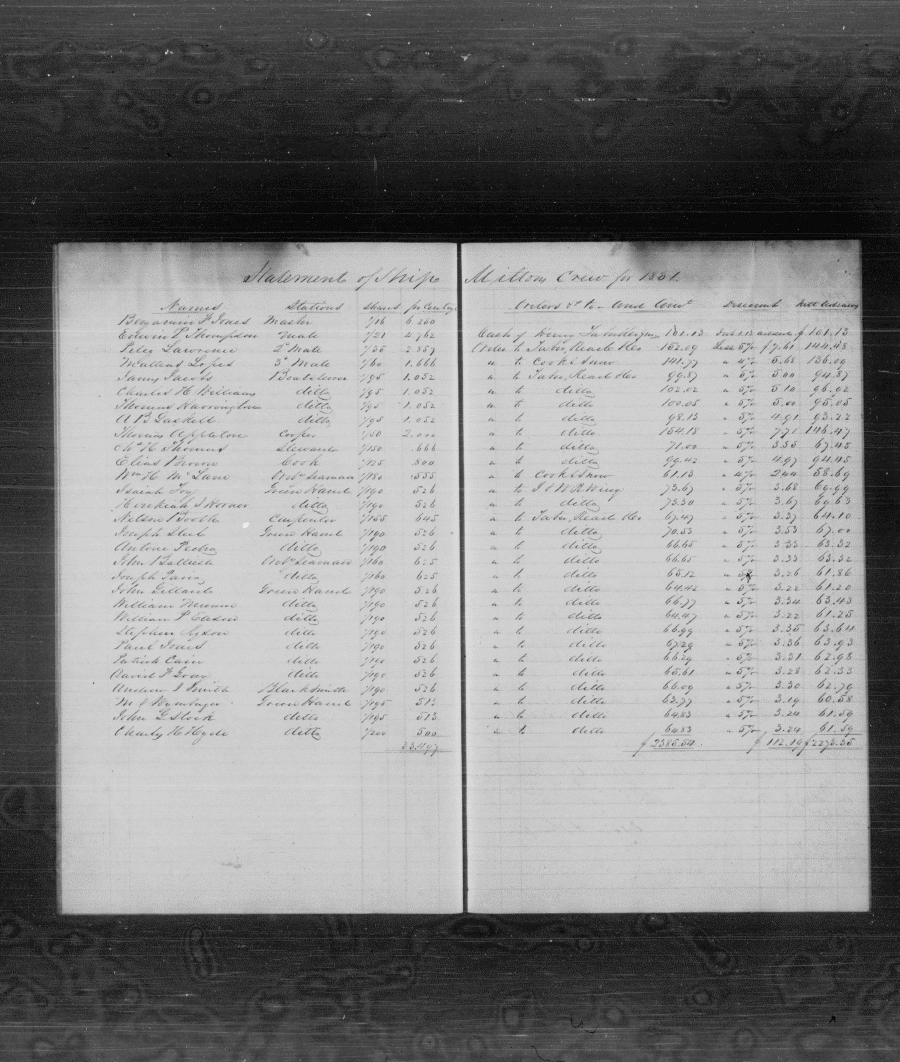 Statement of Ship Miltons Crew for 1851.
Names Stations Shares per Centage Orders &c to Discount Nett Ordering
Benjamin F Jones Master 1/16 6.250
Edwin P Thompson Mate 1/21 4.762 Cash of Henry Taber 101.13 $101.13
Peleg Lawrence 2d Mate 1/35 2.857 Order to Taber, Read & Co 152.09 Less 5% $7.61 144.48
Lopes 3d Mate 1/60 1.666 " to Cook & Snow 141.77 " 4% 5.68 136.09
Jacobs Boatsteerer 1/95 1.052 " to Taber, Read & Co 99.87 " 5% 5.00 94.87
Charles H Williams ditto 1/95 1.052 " to ditto 102.02 " 5% 5.10 96.92
Thomas Harrington ditto 1/95 1.052 " to ditto 100.05 " 5% 5.00 95.05
A B Gaskell ditto 1/95 1.052 " to ditto 98.13 " 5% 4.91 93.22
Thomas Appleton Cooper 1/50 2.000 " to ditto 154.18 " 5% 7.71 146.47
Ch H Thomas Steward 1/150 .666 " to ditto 71.00 " 5% 3.55 67.45
Elias Brown Cook 1/125 .800 " to ditto 99.42 " 5% 4.97 94.45
Wm H McLane Ord Seaman 1/180 .555 " to Cook & Snow 61.13 " 4% 2.44 58.69
Isaiah Green Hand 1/190 526 " to I & W R Wing 73.67 " 5% 3.68 69.99
Hezekiah J Horner ditto 1/190 526 " to ditto 73.30 " 5% 3.67 69.63
Nelson Booth Carpenter 1/155 645 " to Taber, Read & Co 67.47 " 5% 3.37 64.10
Joseph Green Hand 1/190 526 " to ditto 70.53 " 5% 3.53 67.00
Antone ditto 1/190 526 " to ditto 66.65 " 5% 3.33 63.32
John Ord Seaman 1/160 625 " to ditto 66.65 " 5% 3.33 63.32
Joseph ditto 1/160 625 " to ditto 65.12 " 5% 3.26 61.86
John Green Hand 1/190 526 " to ditto 64.42 " 5% 3.22 61.20
William ditto 1/190 526 " to ditto 66.77 " 5% 3.34 63.43
William P Eldson ditto 1/190 526 " to ditto 64.47 " 5% 3.22 61.25
Stephen ditto 1/190 526 " to ditto 66.99 " 5% 3.35 63.64
Paul Jones ditto 1/190 526 " to ditto 67.29 " 5% 3.36 63.93
Patrick Cain ditto 1/190 526 " to ditto 66.29 " 5% 3.31 62.98
David F Gray ditto 1/190 526 " to ditto 65.61 " 5% 3.28 62.33
Andrew J Smith Blacksmith 1/190 526 " to ditto 66.09 " 5% 3.30 62.79
M J Green Hand 1/195 513 " to ditto 63.77 " 5% 3.19 60.58
John L Stock ditto 1/195 513 " to ditto 64.83 " 5% 3.24 61.59
Charles H Hyde ditto 1/200 500 " to ditto 64.83 " 5% 3.24 61.59
33.497 $2385.54. $112.19 $2273.35